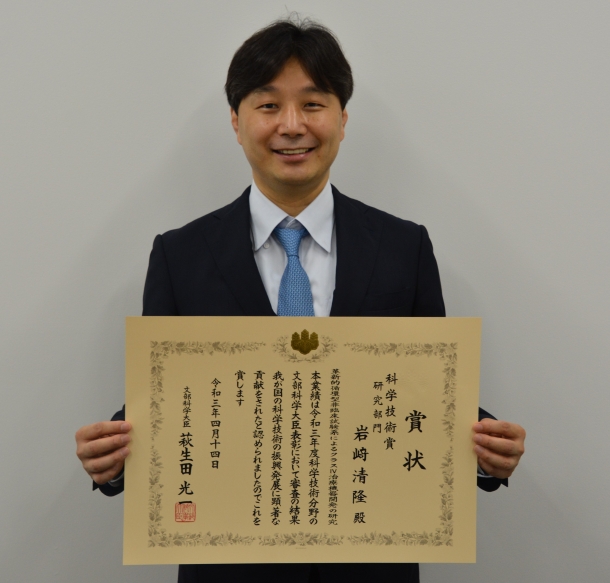 賞状
科学技術賞
研究部門
岩﨑清隆殿
革新的循環型非臨床試験系によるクラスⅣ治療機器開発の研究
本業績は令和三年度科学技術分野の
文部科学大臣表彰において審査の結果
我が国の科学技術の振興発展に顕著な
貢献をされたと認められましたのでこれを
賞します
令和三年四月十四日
文部科学大臣 萩生田光一